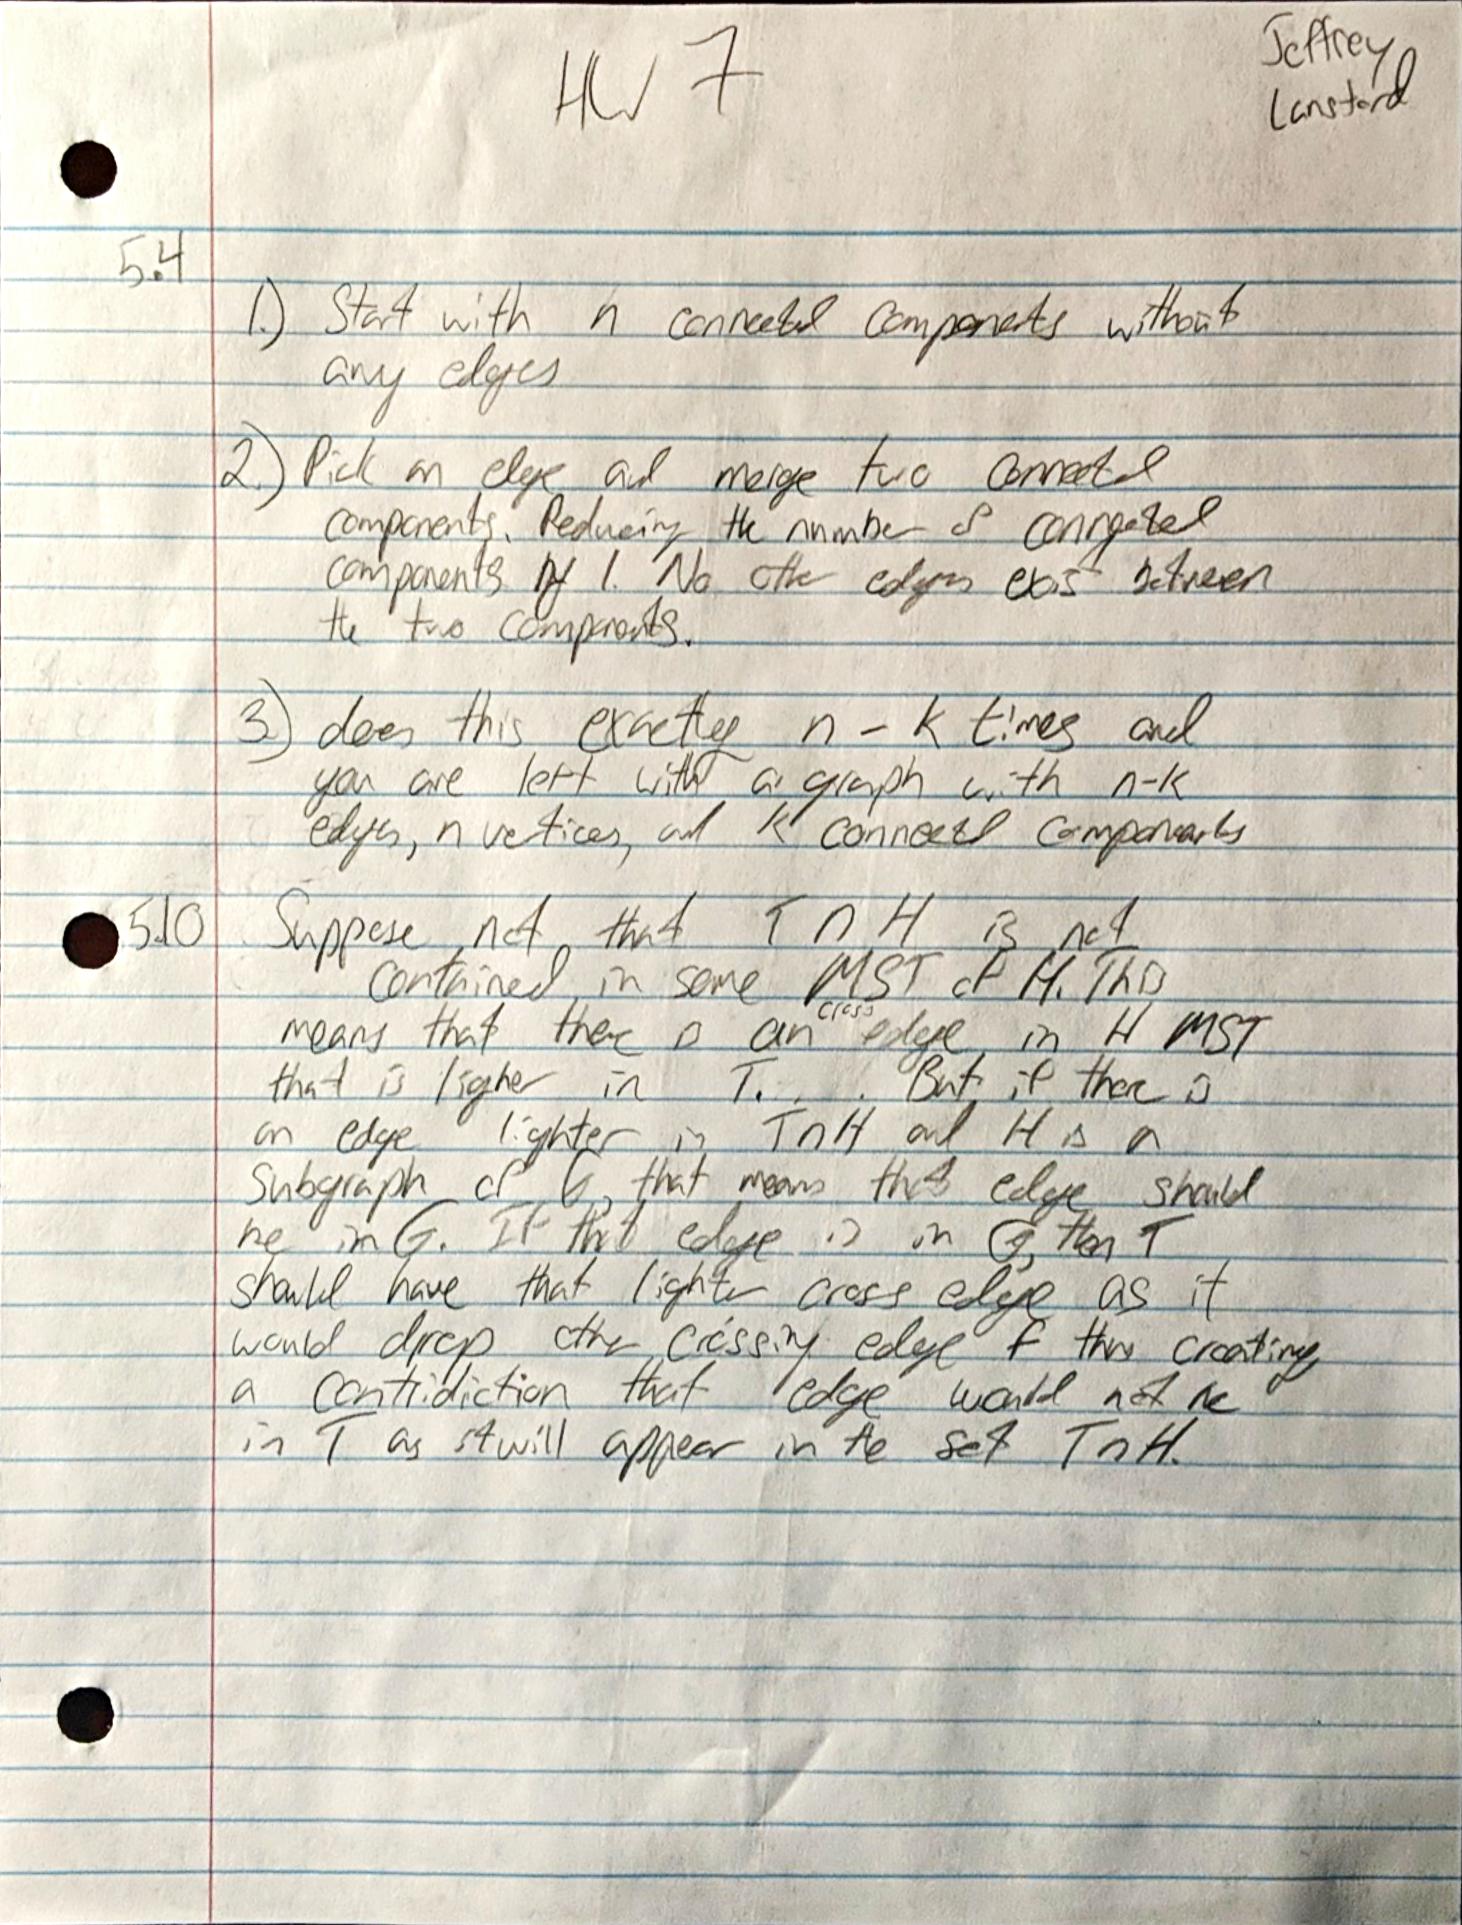 HW 7
Jeffrey
Lansford
5.4
1.) Start with n connected components without
any edges
2.) Pick an edge and merge two connected
components. Reducing the number of connected
components by 1. No other edges exis between
the two components.
3.) does this exactly n - k times and
you are left with a graph with n-k
edges, n vertices, and k connected components
5.10 Suppose not, that T ∩ H is not
contained in some MST of H. This
cross
means that there is an edge in H MST
that is ligher in T. . . . But, if there is
an edge lighter in T∩H and H is a
Subgraph of G, that means that edge should
be in G. If that edge is in G, then T
should have that lighter cross edge as it
would drop other crossing edge f thus creating
a contridiction that edge would not be
in T as it will appear in the set T∩H.